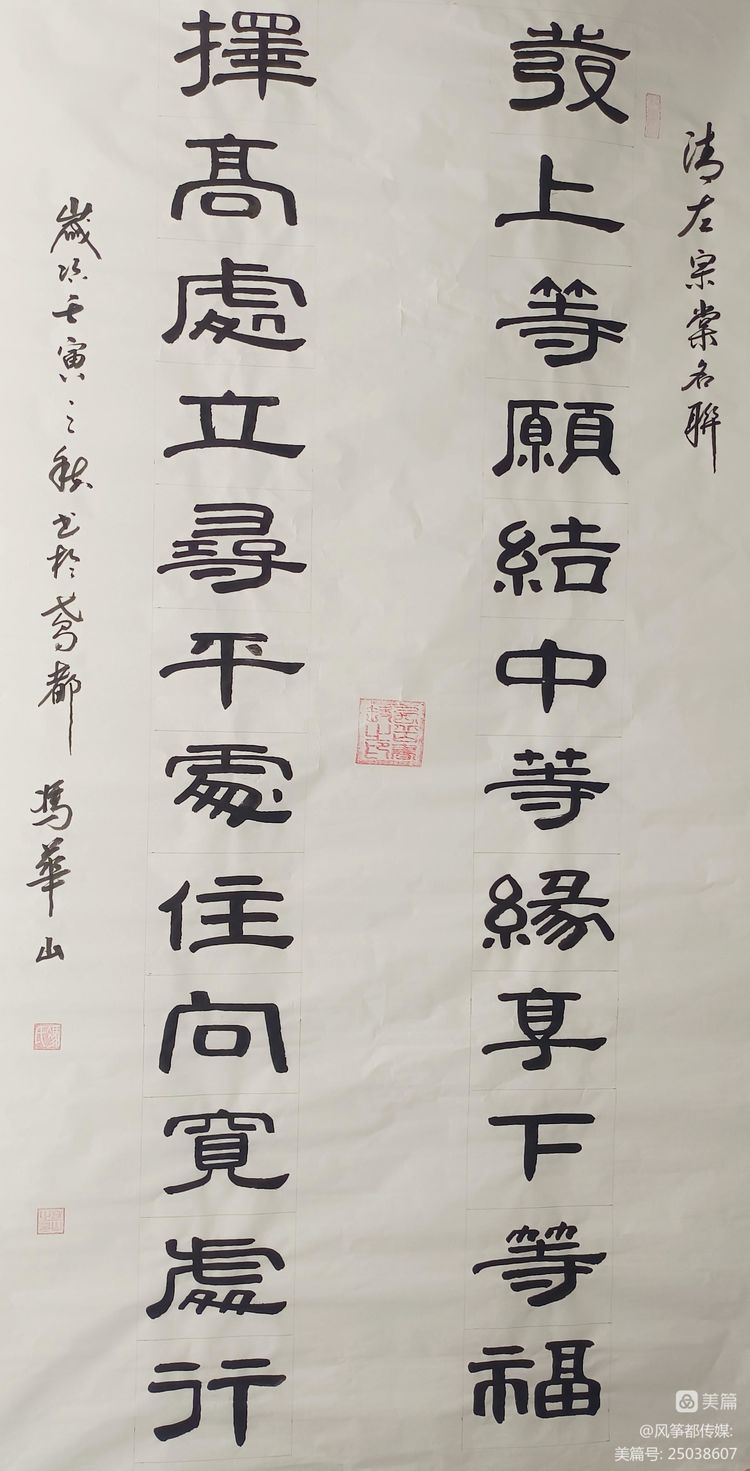 清左宗棠名聯
發上等願結中等緣享下等福
擇高處立尋平處住向寬處行
歲次壬寅之秋书於鸢都 馮華山
美篇
@风筝都传媒:
美篇号: 25038607